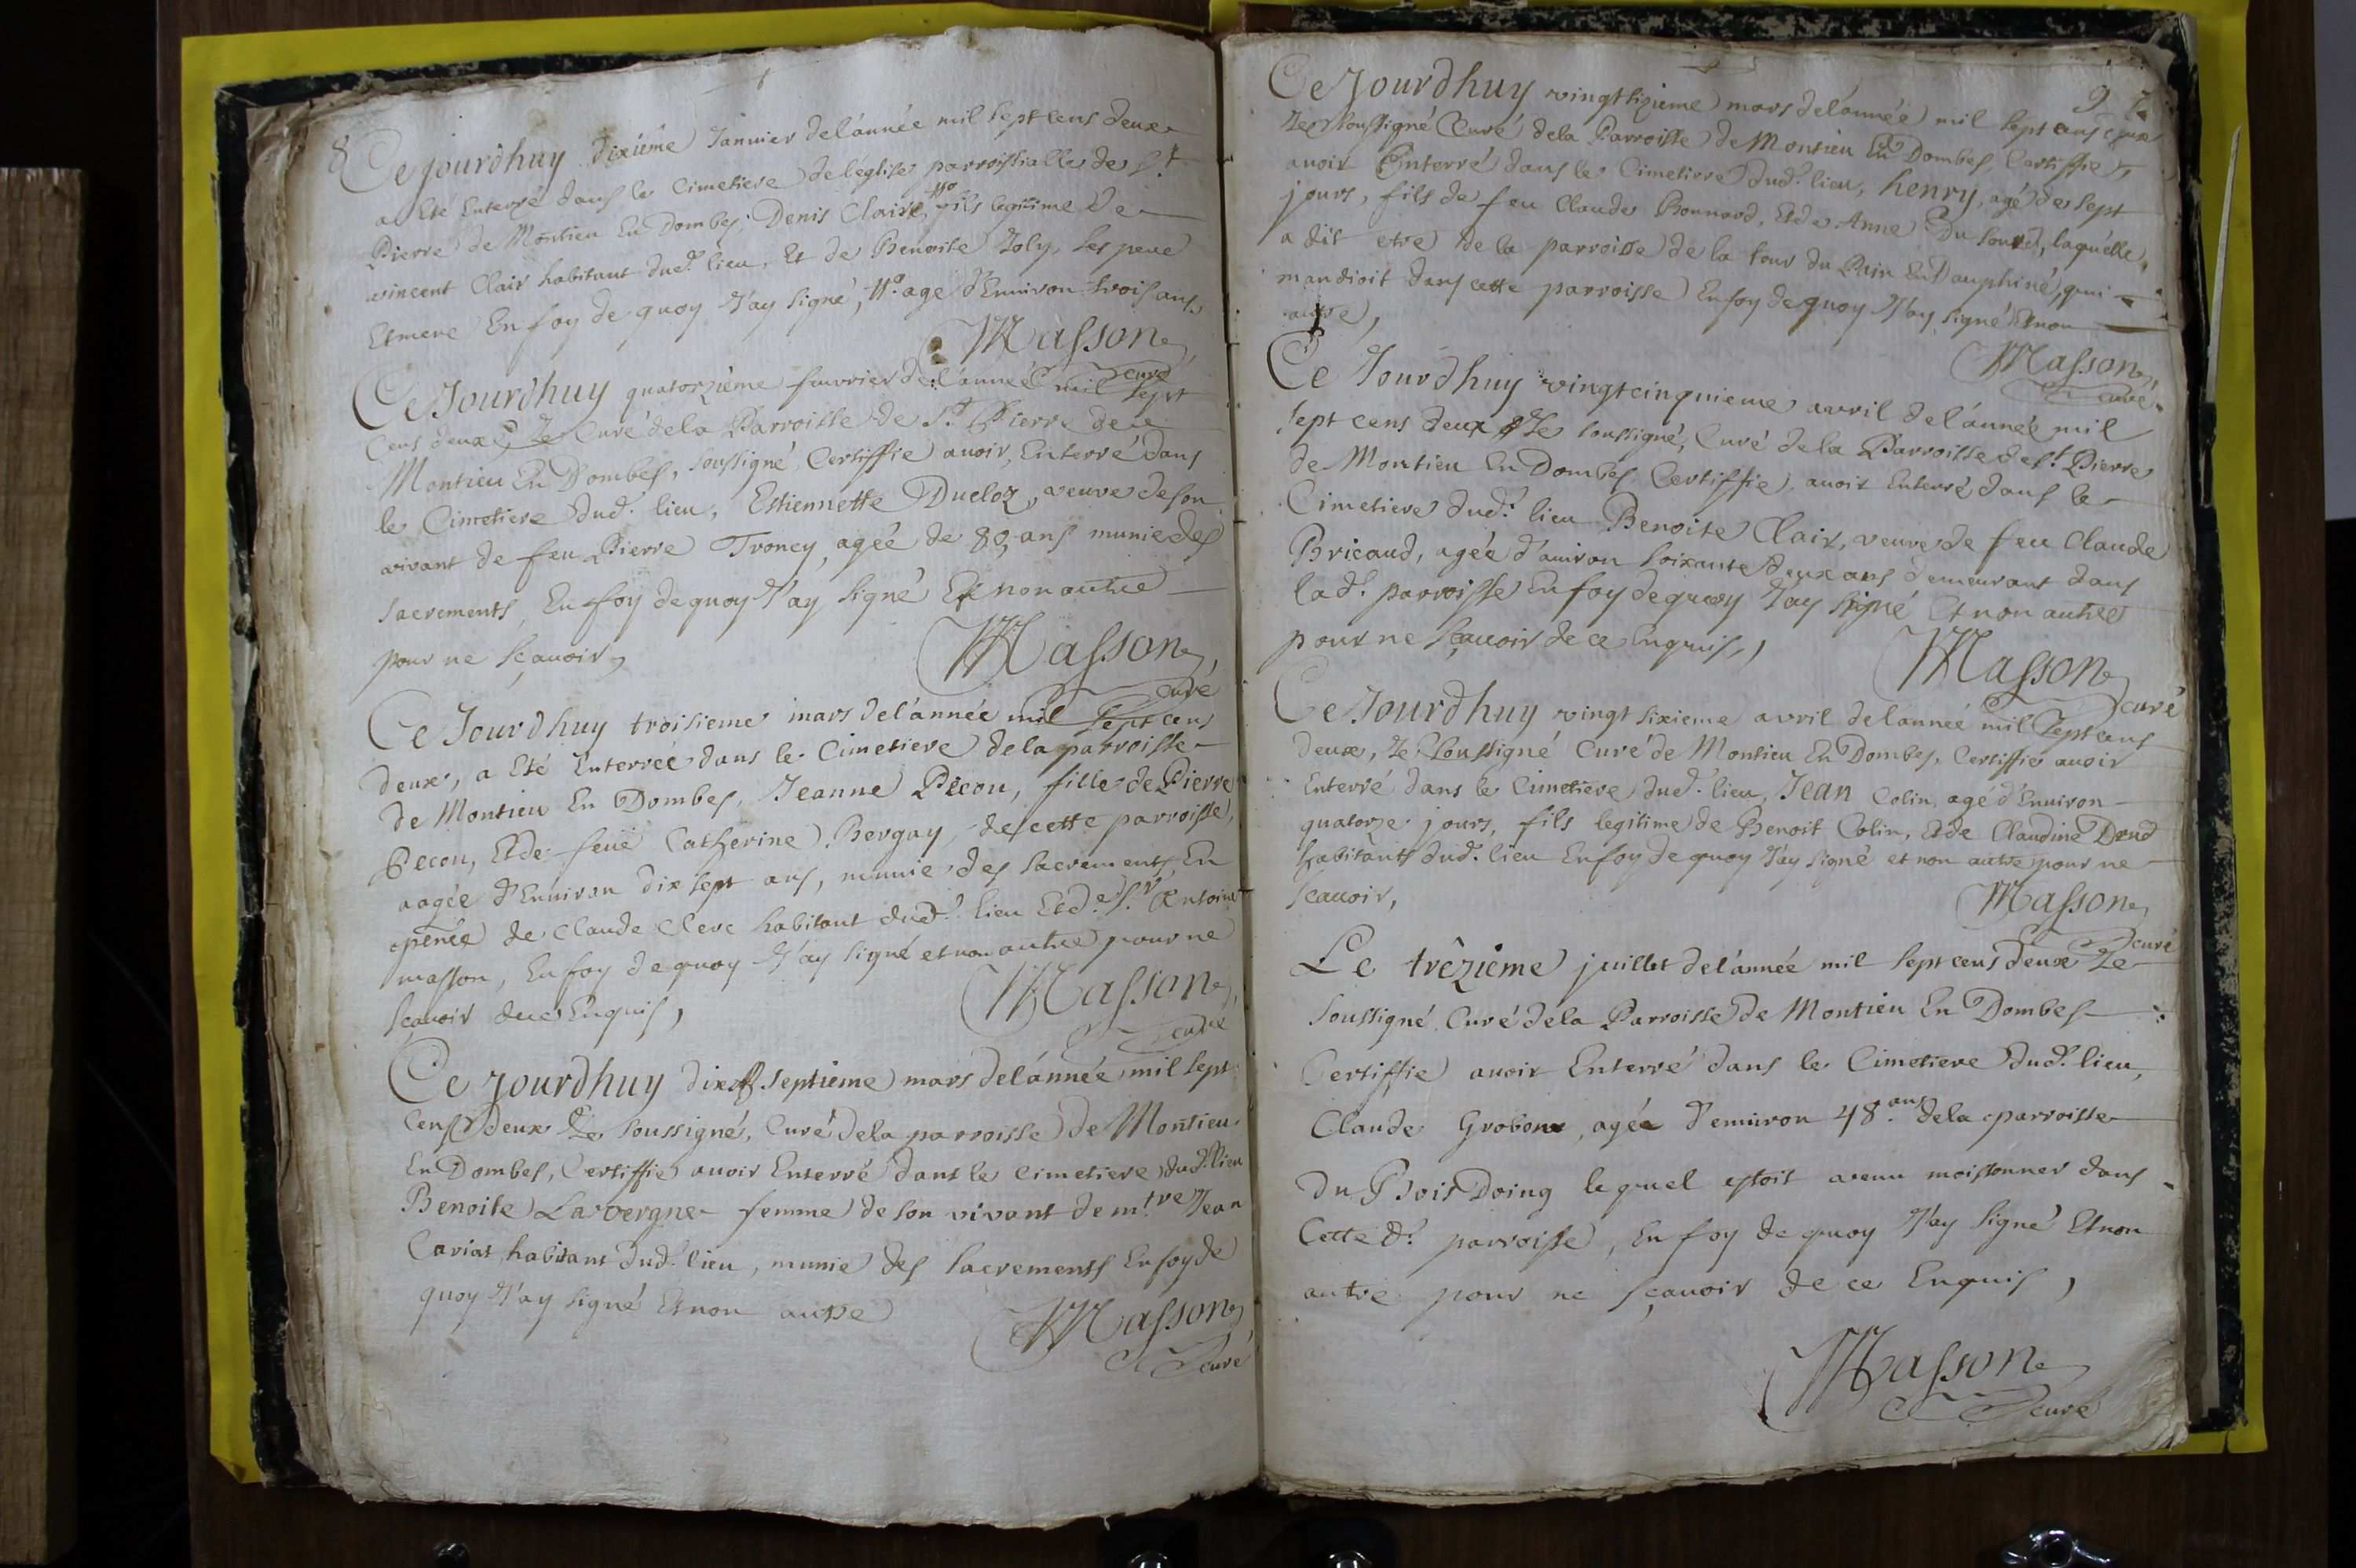 8
Ce jourdhuy dixiéme Januier de l'année mil sept cens deux
a Eté Enterré dans le Cimetiere de l'eglise parroissialle de St
Pierre de Montieu En Dombes, Denis Clair, fils legitime de
vincent Clair habitant dud. lieu, Et de Benoite Joly, ses pere
Et mere En foy de quoy J'ay signé, agé d'Enuiron trois ans,
Masson
curé
Ce Jourdhuy quatorziéme feuvrier de l'année mil sept
Cens deux Je Curé de la Parroisse de St Pierre de
Montieu En Dombes, soussigné Certiffie auoir Enterré dans
le Cimetiere dud. lieu, Estiennette Ducloz, veuve de son
vivant de feu Pierre Troncy, agée de 80 ans munie des
sacrements, En foy de quoy J'ay signé Et non autre
pour ne sçauoir,
Masson
curé
Ce Jourdhuy troisieme mars de l'année mil sept cens
deux, a Eté Enterrée dans le Cimetiere de la parroisse
de Montieu En Dombes, Jeanne Pecon, fille de Pierre
Pecon, Et de feüe Catherine Bergay, de cette parroisse,
aagée d'Enuiron dix sept ans, munie des sacrements, En
de Claude Clerc habitant dud. lieu Et d. Sr. Antoine
masson, En foy de quoy J'ay signé et non autre pour ne
sçauoir de ce Enquis,
Masson
curé
Ce jourdhuy dix septieme mars de l'année mil sept
Cens deux Je soussigné, Curé de la parroisse de Montieu
En Dombes, Certiffie auoir Enterré dans le Cimetiere dud. lieu
Benoite Lavergne femme de son vivant de mtre Jean
Cariat habitant dud. lieu, munie des sacrements En foy de
quoy J'ay signé Et non autre
Masson
curé
9
Ce Jourdhuy vingt sixieme mars de l'année mil sept cens deux
Je soussigné Curé de la Parroisse de Montieu En Dombes, Certiffie
auoir Enterré dans le Cimetiere dud. lieu, henry, agé de sept
jours, fils de feu Claude Bonnard, Et de Anne Du , laquelle
a dit etre de la parroisse de la tour du Pin En Dauphiné, qui
mandioit dans cette parroisse En foy de quoy J'ay signé Et non
autre,
Masson
curé
Ce Jourdhuy vingtcinquieme avril de l'année mil
sept cens deux Je soussigné, Curé de la Parroisse de St. Pierre
de Montieu En Dombes Certiffie auoir Enterré dans le
Cimetiere dud. lieu Benoite Clair, veuve de feu Claude
Bricaud, agée d'auiron soixante deux ans demeurant dans
lad. parroisse En foy de quoy J'ay signé Et non autre
pour ne sçauoir de ce Enquis,
Masson
curé
Ce Jourdhuy vingt sixieme avril de l'année mil sept cens
deux, Je soussigné Curé de Montieu En Dombes, Certiffie auoir
Enterré dans le Cimetiere dud. lieu, Jean Colin, agé d'Enuiron
quatorze jours, fils legitime de Benoit Colin, Et de Claudine
habitants dud. lieu En foy de quoy J'ay signé et non autre pour ne
sçauoir,
Masson
curé
Le trêzieme juillet de l'année mil sept cens deux Je
soussigné Curé de la Parroisse de Montieu En Dombes
Certiffie auoir Enterré dans le Cimetiere dud. lieu,
Claude Grobon, agée d'enuiron 48. ans de la parroisse
Du Bois Doing lequel estoit venu moissonner dans
Cetted. parroisse, En foy de quoy J'ay signé Et non
autre pour ne sçauoir de ce Enquis,
Masson
curé